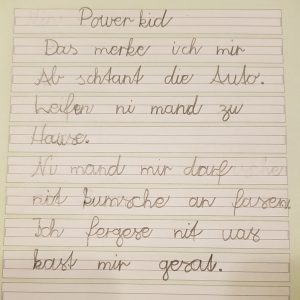 Power kid
Das merke ich mir
Ab schtant die Auto.
Leifen ni mand zu
Hause.
Ni mand mir darf
mit kumsche an fasern
Ich fergese nit was
hast mir gesat.